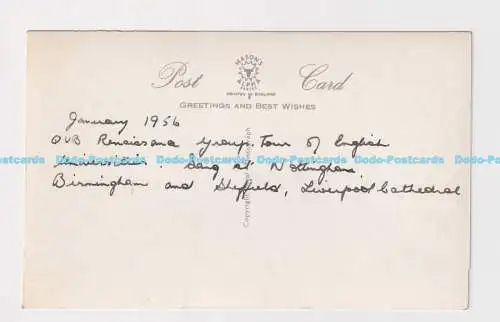 MASON'S
ALPHA
SERIES
PRINTED IN ENGLAND
Post Card
GREETINGS AND BEST WISHES
January 1956
QUB Renaissance Group. Tour of English
Universities. Sang at Nottingham,
Birmingham and Sheffield, Liverpool Cathedral
Dodo-Postcards Dodo-Postcards Dodo-Postcards Dodo-Postcards Dodo-Postcards